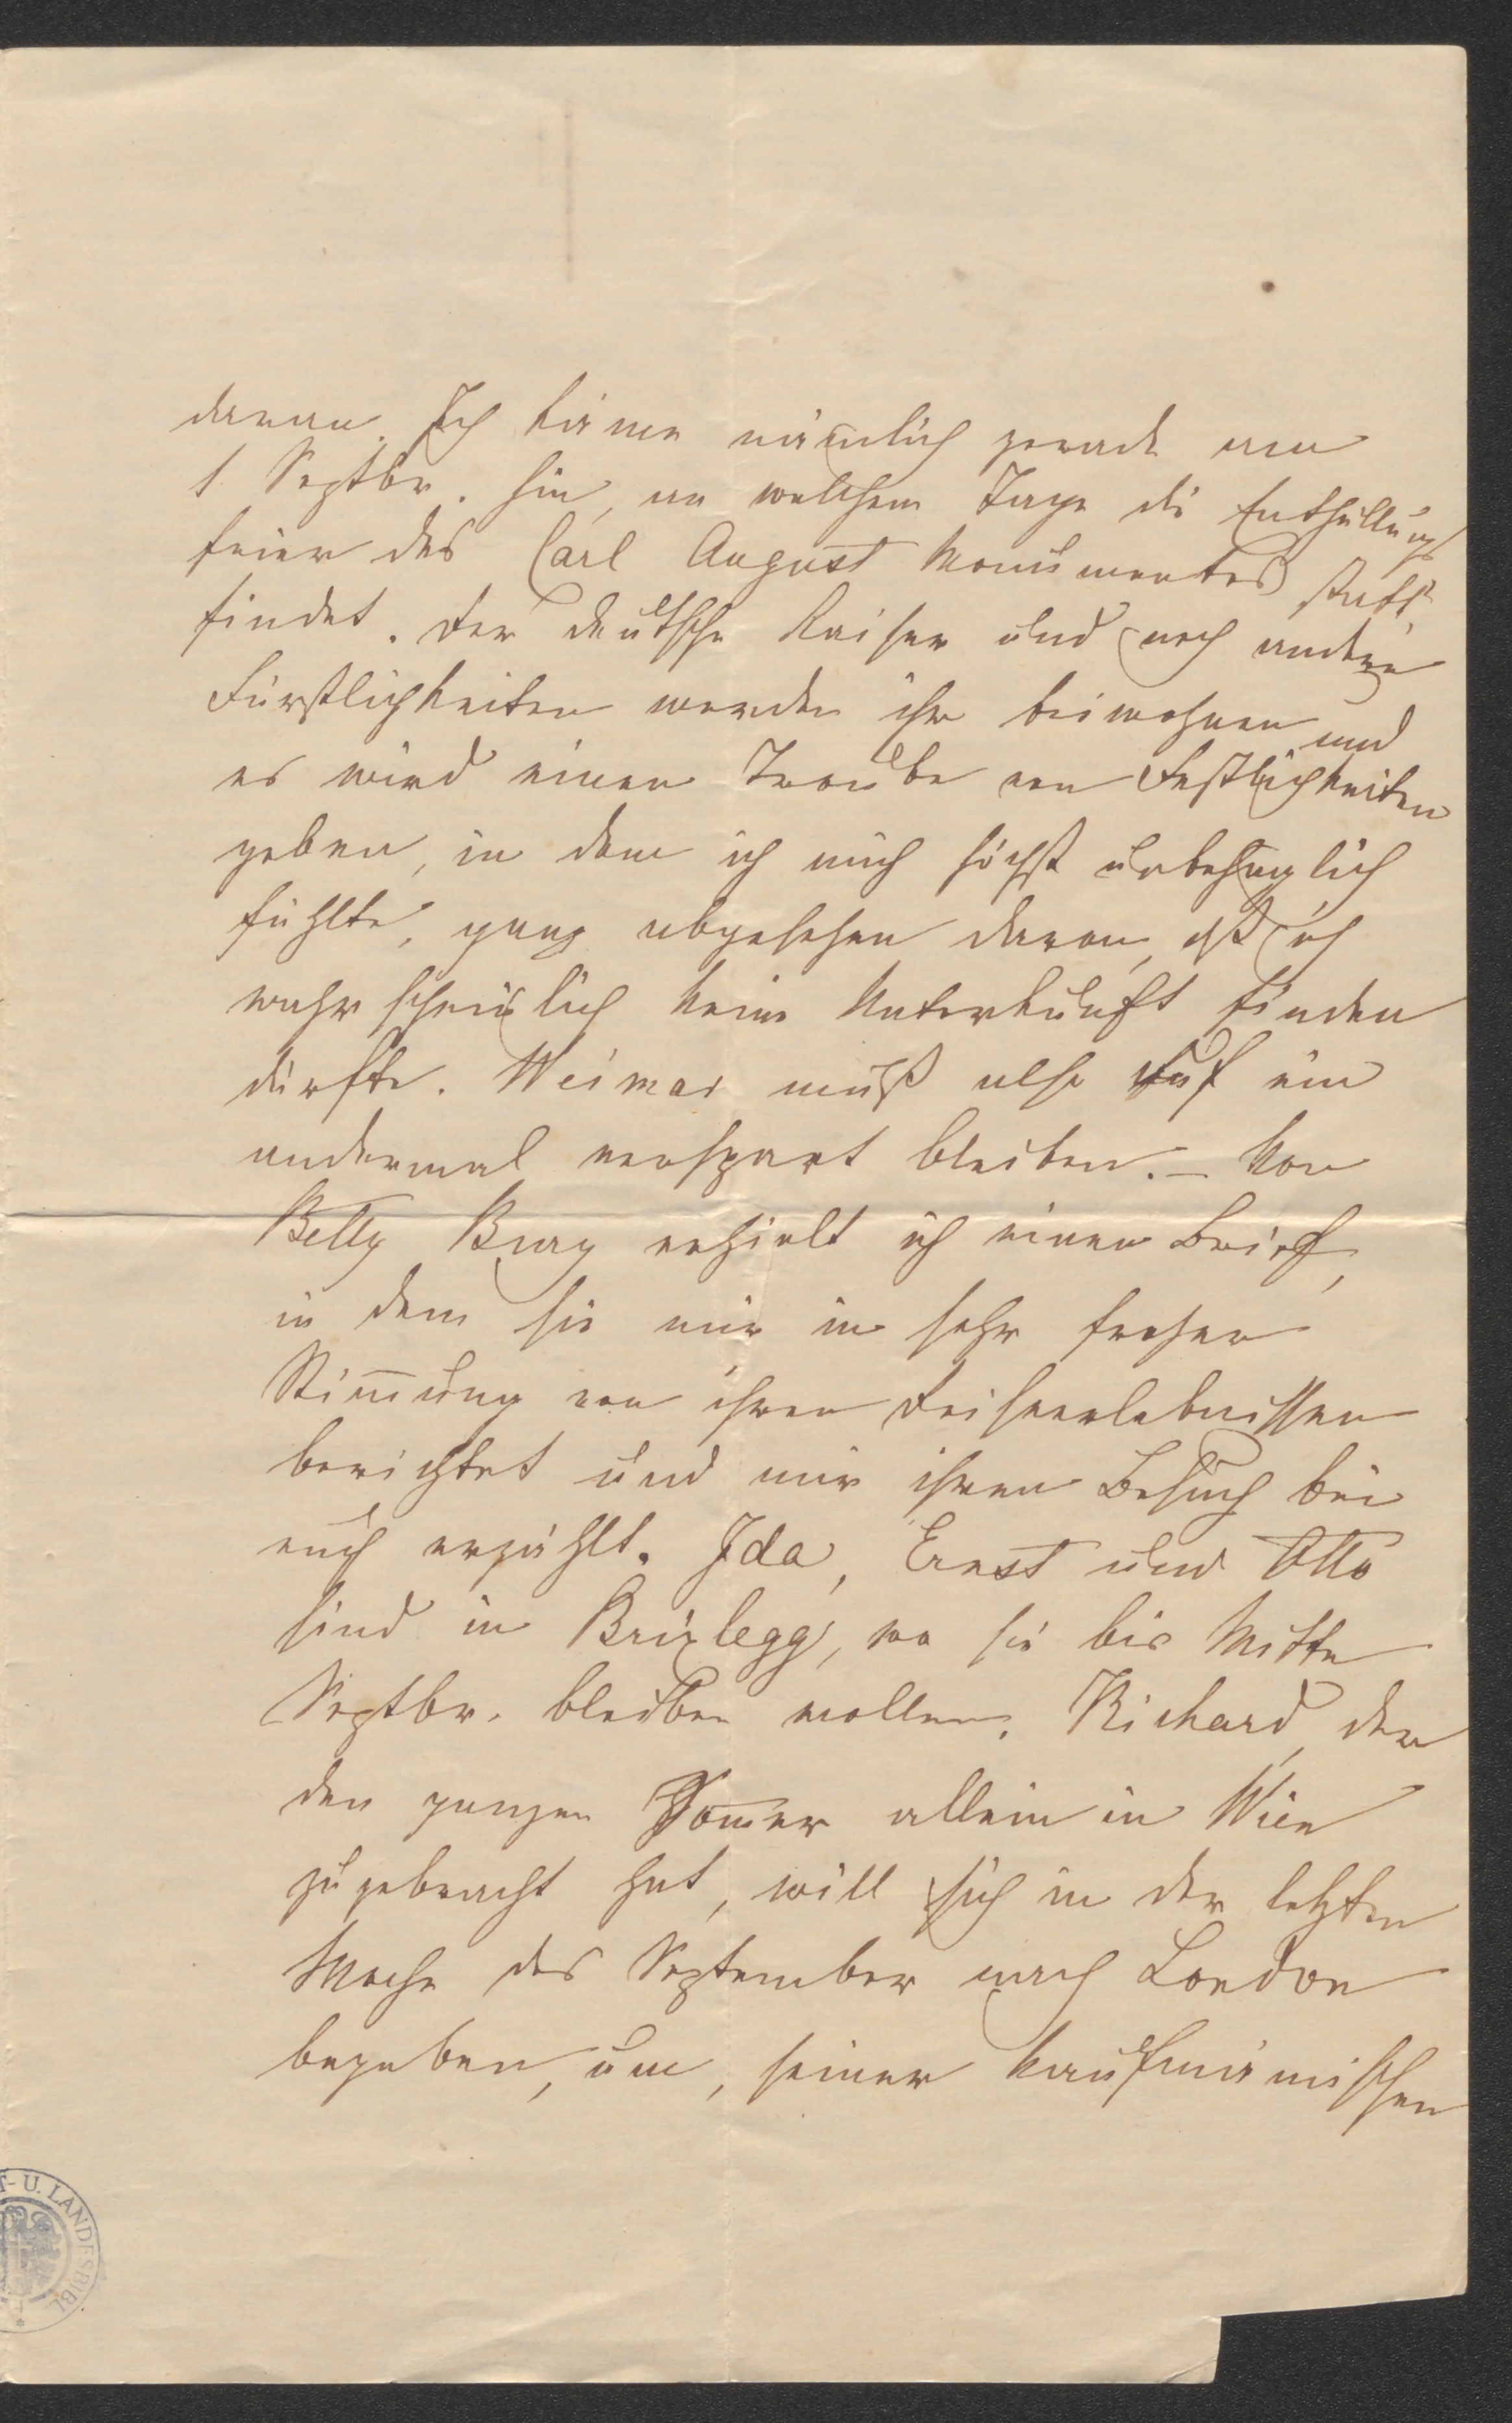 daran. Ich käme nämlich gerade am
1. Septbr. hin, an welchem Tage die Enthüllungs
feier des Carl August Monumentes statt
findet. Der deutsche Kaiser und noch andere
Fürstlichkeiten werden ihr beiwohnen und
es wird einen Trouble von Festlichkeiten
geben, in dem ich mich höchst unbehaglich
fühlte, ganz abgesehen davon, dß ich
wahrscheinlich keine Unterkunft finden
dürfte. Weimar muß also auf ein
andermal verspart bleiben. – Von
Betty Bray erhielt ich einen Brief,
in dem sie mir in sehr froher
Stim̄ung von ihren Reiseerlebnissen
berichtet und mir ihren Besuch bei
euch erzählt. Ida, Ernst und Otto
sind in Brixlegg, wo sie bis Mitte
Septbr. bleiben wollen. Richard, der
den ganzen Som̄er allein in Wien
zugebracht hat, will sich in der letzten
Woche des September nach London
begeben, um, seiner kaufmänischen
T- U. LANDESBIBL.